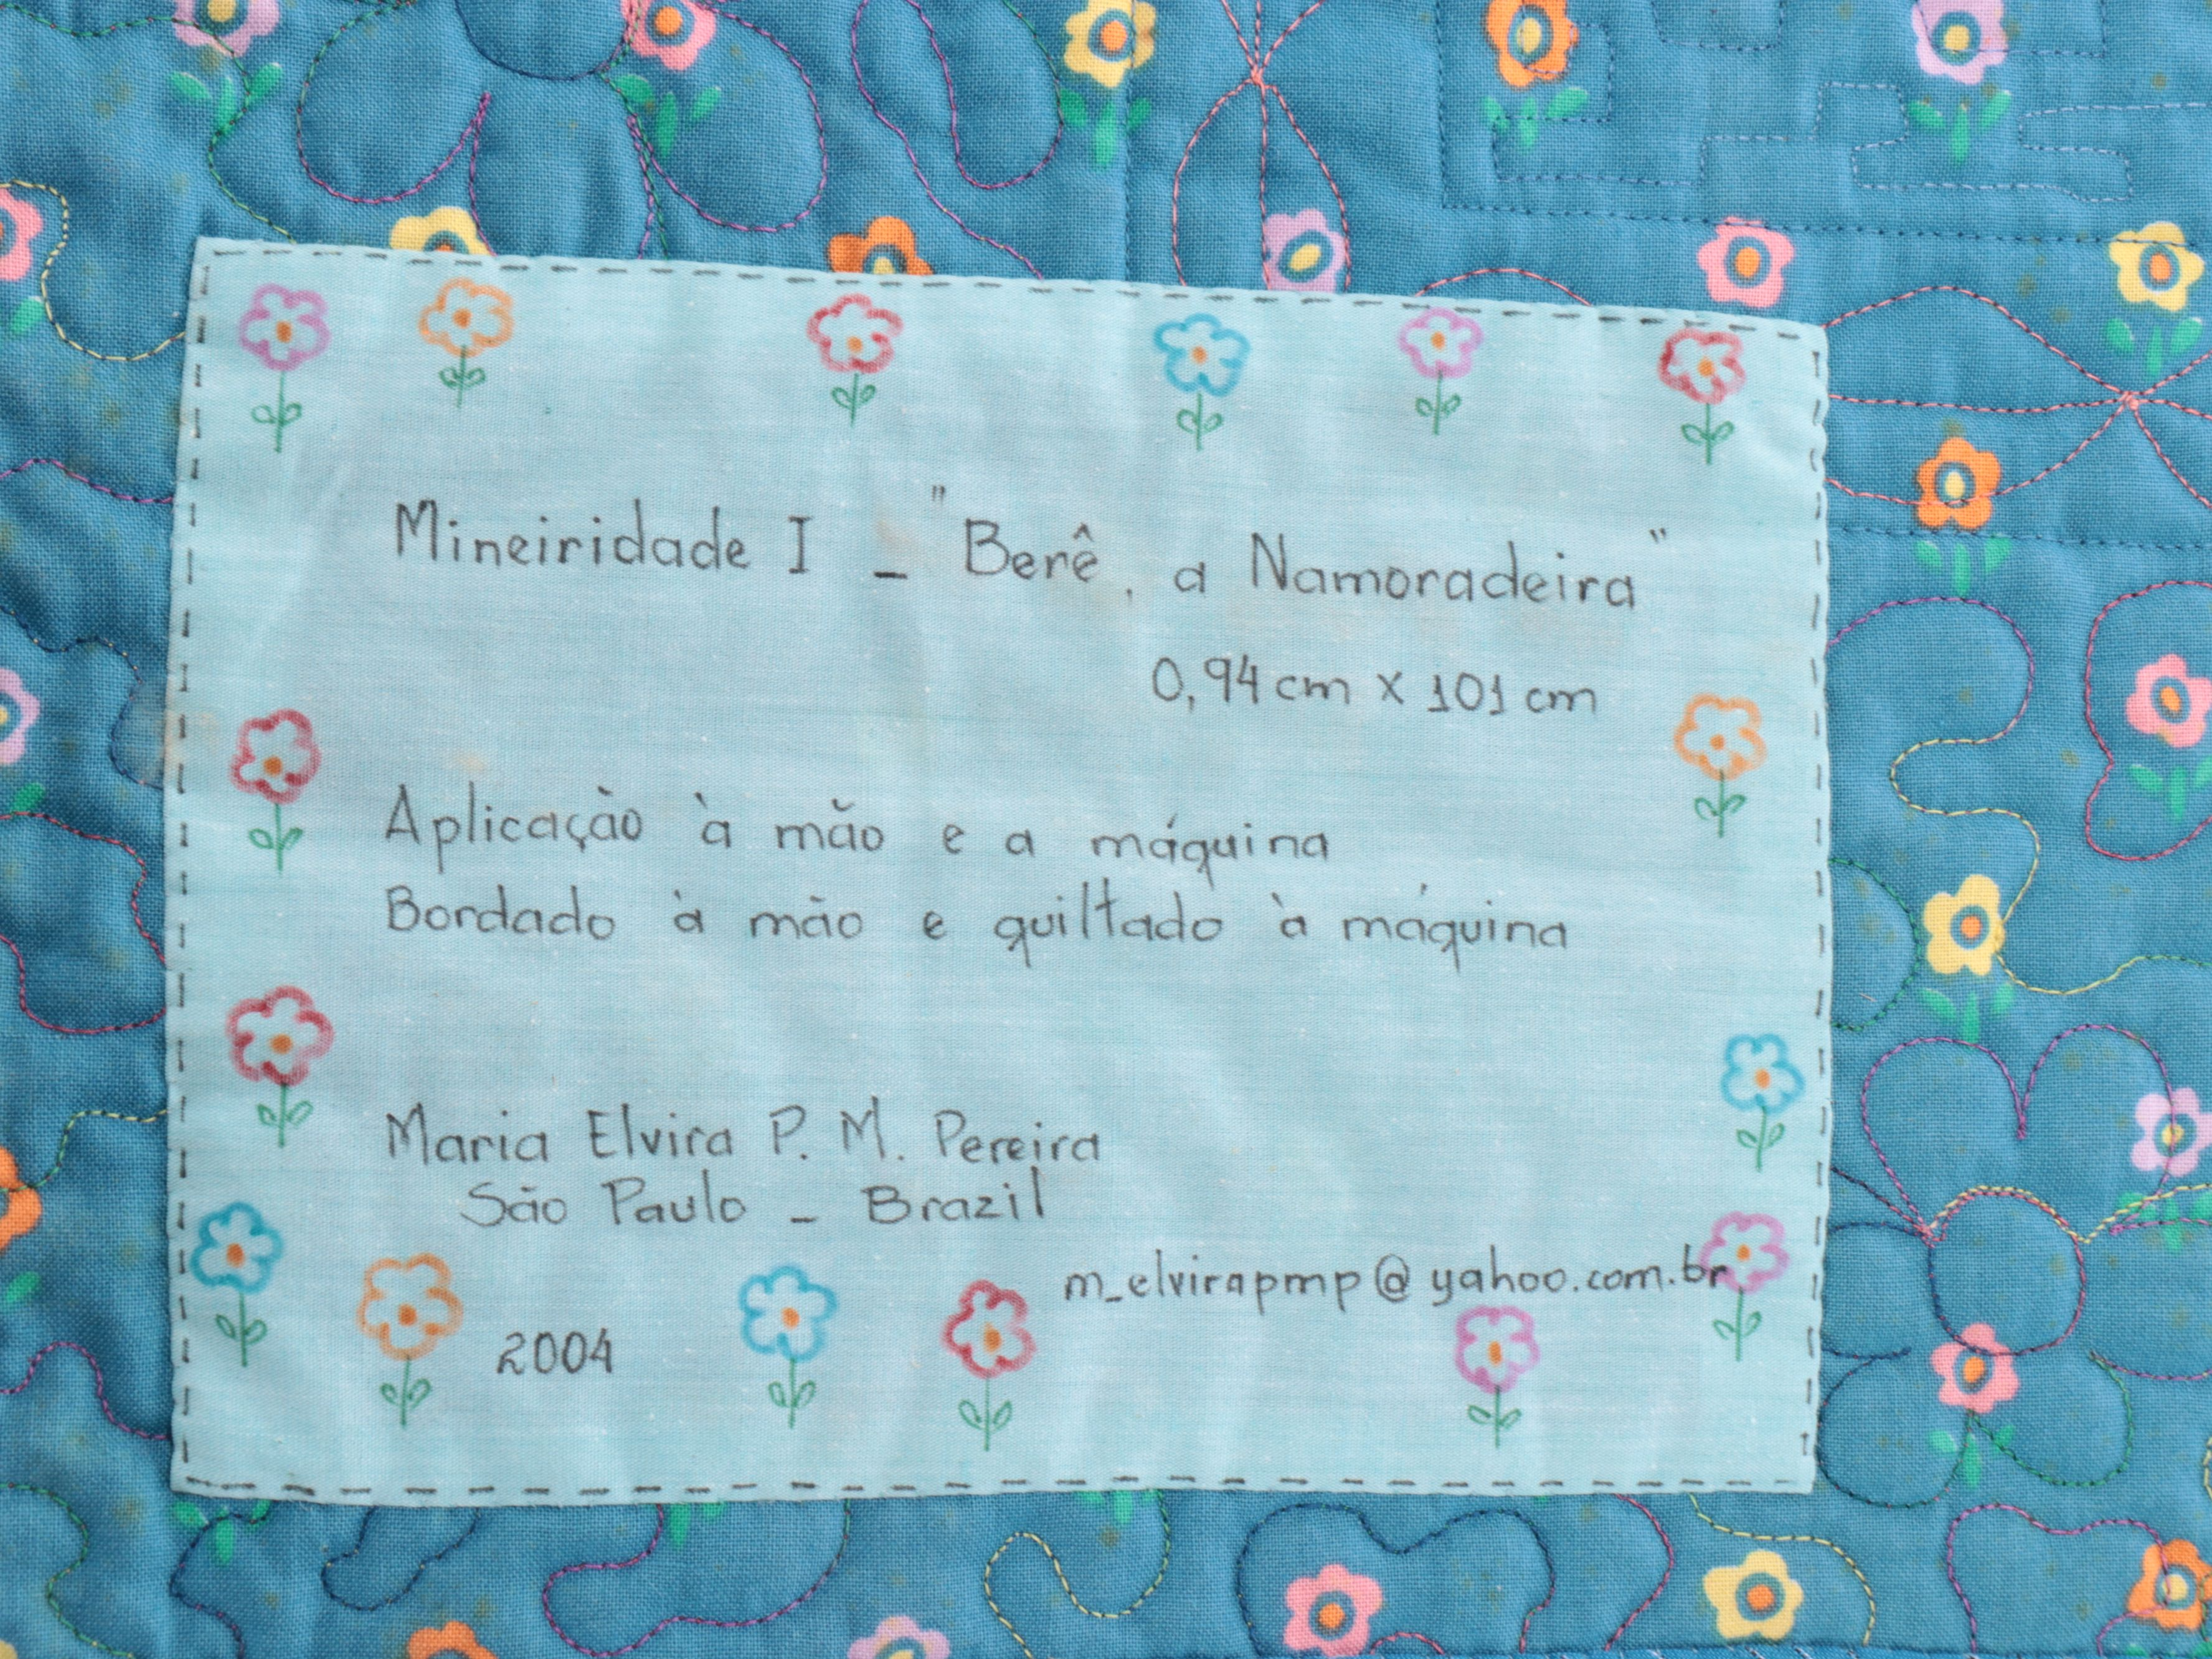 Mineiridade I _ "Berê, a Namoradeira"
0,94 cm x 101 cm
Aplicação à mão e a máquina
Bordado à mão e quiltado à máquina
Maria Elvira P. M. Pereira
São Paulo _ Brazil
m_elvirapmp@yahoo.com.br
2004